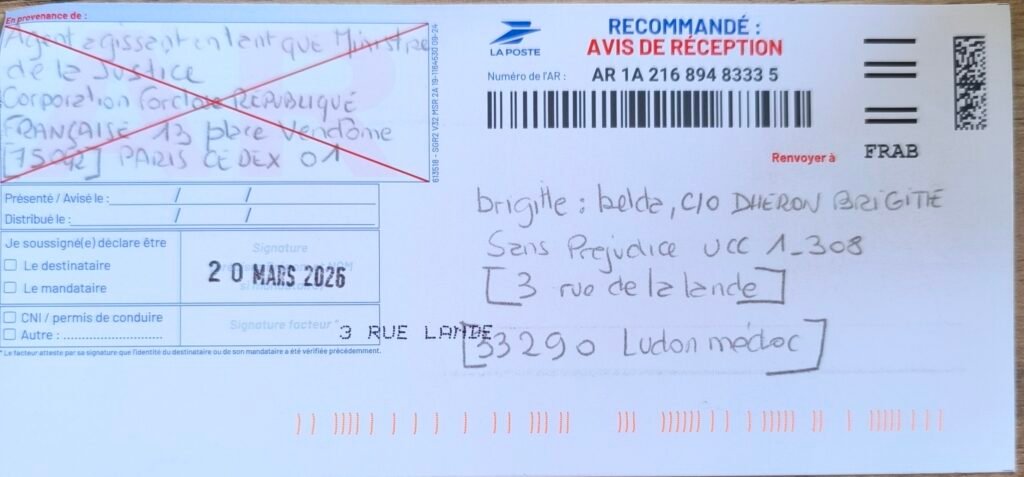 En provenance de :
Agent agissant en tant que Ministre
de la Justice
Corporation Forclose REPUBLIQUE
FRANÇAISE 13 place Vendôme
[75042] PARIS CEDEX 01
613518 - SGR2 V32 MSR 2A 19-1164630 09-24
LA POSTE
RECOMMANDÉ :
AVIS DE RÉCEPTION
Numéro de l'AR : AR 1A 216 894 8333 5
Renvoyer à
FRAB
brigitte : belda, C/O DHERON BRIGITTE
Sans Prejudice UCC 1_308
[3 rue de la lande]
[33290 Ludon médoc]
Présenté / Avisé le : / /
Distribué le : / /
Je soussigné(e) déclare être
Le destinataire
Le mandataire
Signature
20 MARS 2026
CNI / permis de conduire
Autre :
Signature facteur *
3 RUE LANDE
* Le facteur atteste par sa signature que l'identité du destinataire ou de son mandataire a été vérifiée précédemment.